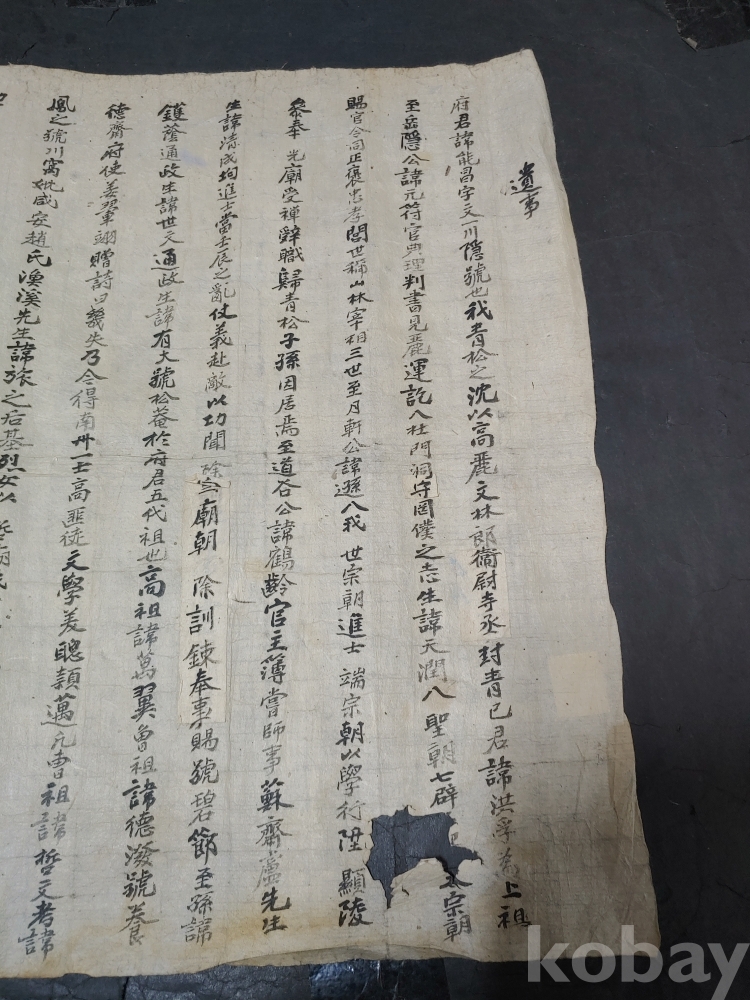 遺事
府君諱能昌字文一川隱號也我青松之沈以高麗文林郞衛尉寺丞封青已君諱洪孚爲上祖
至岳隱公諱元符官典理判書見麗運訖入杜門洞守罔僕之志生諱天潤入 聖朝七辟 太宗朝
賜官令同正褒忠孝閭世稱山林宰相三世至月軒公諱遜入我 世宗朝進士 端宗朝以學行陞 顯陵
叅奉 光廟受禪辭職歸青松子孫因居焉至道谷公諱鶴齡官主簿嘗師事蘇齋盧先生
生諱淸成均進士當壬辰之亂仗義赴敵以功聞 除 宣廟朝 除訓鍊奉事賜號碧節至孫諱
鑊蔭通政生諱世文通政生諱有大號松菴於府君五代祖也高祖諱萬翼曾祖諱德潑號養
德齋府使姜翬翊贈詩曰幾失乃今得南州一士高匪徒文學美聰穎邁凡曹祖諱哲文考諱
鳳之號川窩妣咸安趙氏漁溪先生諱旅之后基烈女以